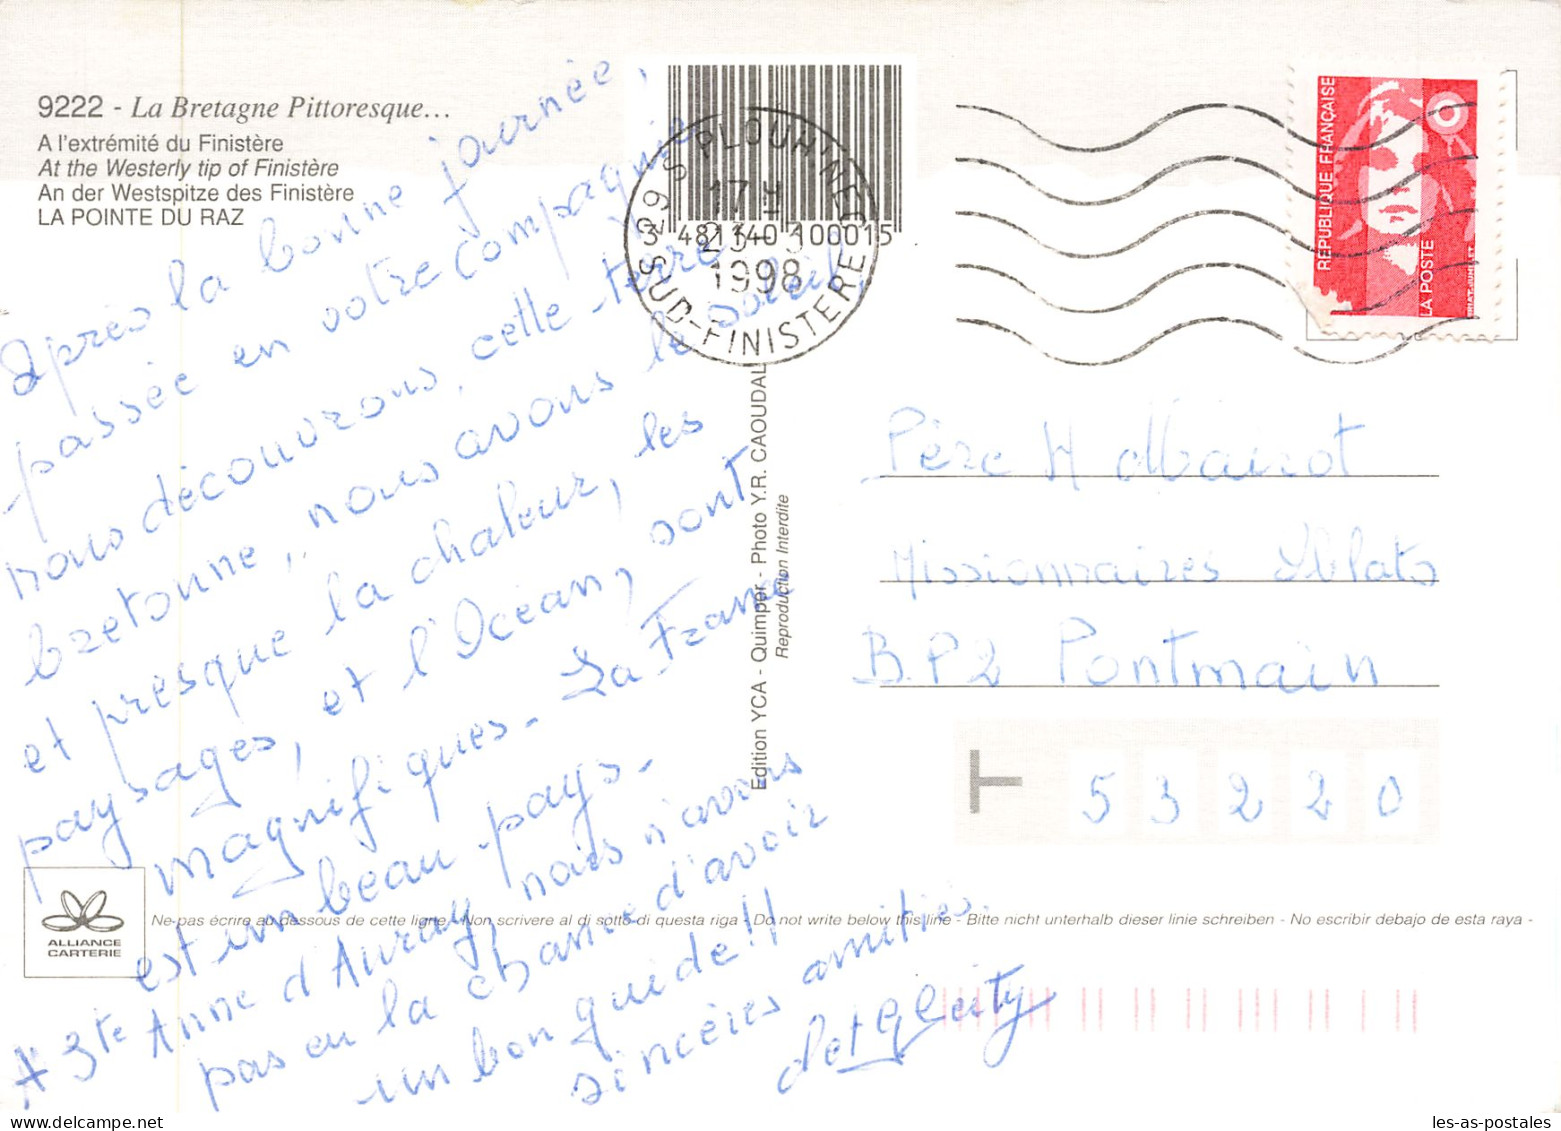 9222 - La Bretagne Pittoresque...
A l'extrémité du Finistère
At the Westerly tip of Finistère
An der Westspitze des Finistère
LA POINTE DU RAZ
Après la bonne journée,
passée en votre compagnie
nous découvrons, cette terre
bretonne, nous avons le soleil,
et presque la chaleur, les
paysages, et l'Océan, sont
magnifiques - La France
est un beau pays -
A Ste Anne d'Auray, nous n'avons
pas eu la chance d'avoir
un bon guide !!
sincères amitiés.
3 481140 100015
29 S PLOUHINEC
17 H
1998
SUD-FINISTERE
RÉPUBLIQUE FRANÇAISE
LA POSTE
Père
Missionnaires Oblats
B.P 2 Pontmain
53220
Edition YCA - Quimper - Photo Y.R. CAOUDAL
Reproduction Interdite
ALLIANCE
CARTERIE
Ne pas écrire au dessous de cette ligne - Non scrivere al di sotto di questa riga - Do not write below this line - Bitte nicht unterhalb dieser linie schreiben - No escribir debajo de esta raya -
delcampe.net
les-as-postales